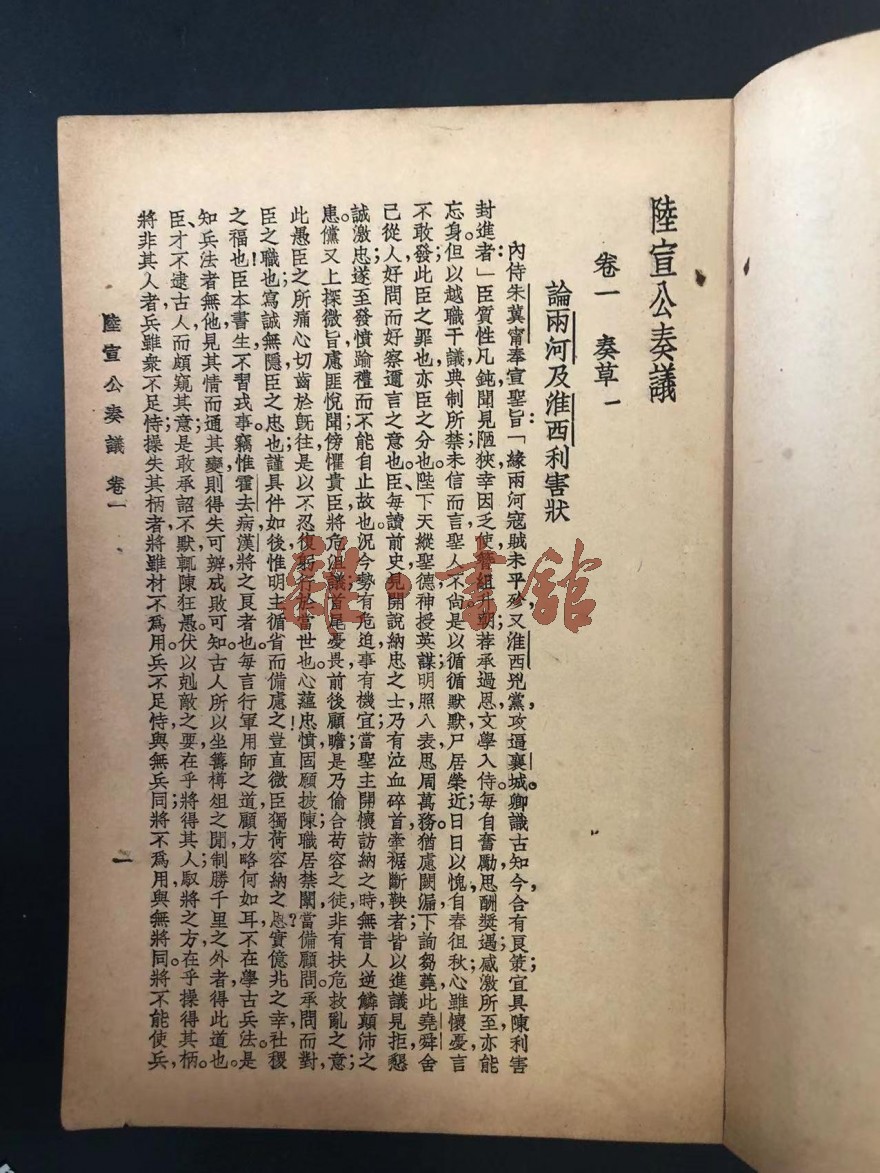 陸宣公奏議
卷一　奏草一
論兩河及淮西利害狀
內侍朱冀甯奉宣聖旨：「緣兩河寇賊未平殄，又淮西兇黨攻逼襄城。卿識古知今，合有良策；宜具陳利害
封進者：」臣質性凡鈍，聞見陋狹，幸因乏使，簪組升朝；荐承過恩，文學入侍。每自奮勵，思酬獎遇；感激所至，亦能
忘身。但以越職干議，典制所禁，未信而言，聖人不尚；是以循循默默，尸居榮近；日日以愧，自春徂秋；心雖懷憂，言
不敢發；此臣之罪也，亦臣之分也。陛下天縱聖德，神授英謀；明照八表，思周萬務；猶慮闕漏，下詢芻蕘，此堯舜舍
己從人，好問而好察邇言之意也。臣每讀前史，見開說納忠之士，乃有泣血碎首，牽裾斷鞅者；皆以進議見拒，懇
誠激忠，遂至發憤踰禮，而不能自止故也。況今勢有危迫，事有機宜；當聖主開懷訪納之時，無昔人逆鱗顛沛之
患。儻又上探微旨，慮匪悅聞；傍懼貴臣，將危沮議；首尾憂畏，前後顧瞻；是乃偷合苟容之徒，非有扶危救亂之意；
此愚臣之所痛心切齒於旣往，是以不忍復躬行於當世也。心蘊忠憤，固願披陳；職居禁闈，當備顧問；承問而對，
臣之職也；寫誠無隱，臣之忠也。謹具件如後，惟明主循省而備慮之！豈直微臣獨荷容納之恩？實億兆之幸，社稷
之福也！臣本書生，不習戎事。竊惟霍去病，漢將之良者也。每言行軍用師之道，顧方略何如耳，不在學古兵法。是
知兵法者無他，見其情而通其變，則得失可辨，成敗可知。古人所以坐籌樽俎之間，制勝千里之外者，得此道也。
臣、才不逮古人，而頗窺其意；是敢承詔不默，輒陳狂愚。伏以剋敵之要，在乎將得其人；馭將之方，在乎操得其柄。
將非其人者，兵雖衆不足恃；操失其柄者，將雖材不爲用。兵不足恃，與無兵同；將不爲用，與無將同。將不能使兵，
陸宣公奏議　卷一
一
雜·書館